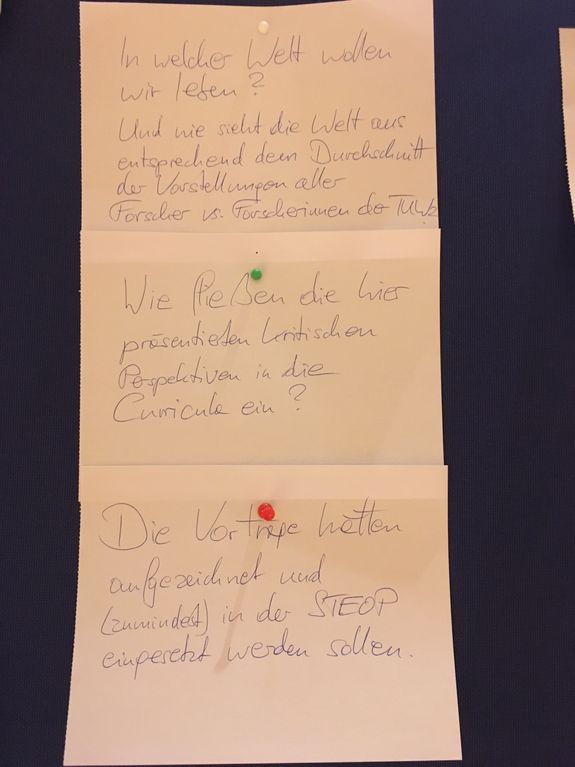 In welcher Welt wollen
wir leben?
Und wie sieht die Welt aus
entsprechend dem Durchschnitt
der Vorstellungen aller
Forscher vs. Forscherinnen der TUW?
Wie fließen die hier
präsentierten kritischen
Perspektiven in die
Curricula ein?
Die Vorträge hätten
aufgezeichnet und
(zumindest) in der STEOP
eingesetzt werden sollen.